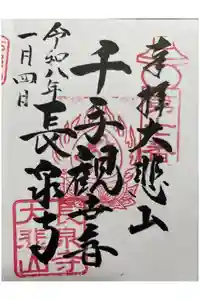 奉拝大悲山
千手観世音
長泉寺
令和八年
一月四日
長泉寺
大悲山